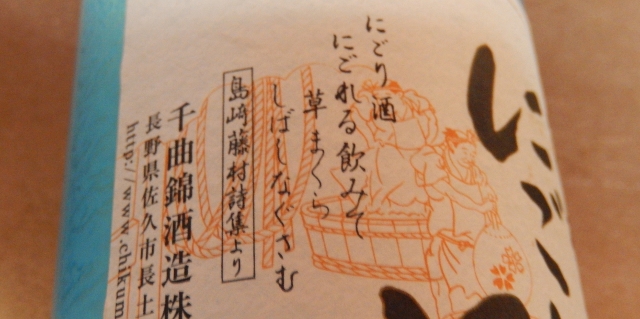 にご
にごり酒
にごれる飲みて
草まくら
しばしなぐさむ
島崎藤村詩集より
千曲錦酒造株
長野県佐久市長土
http://www.chikum